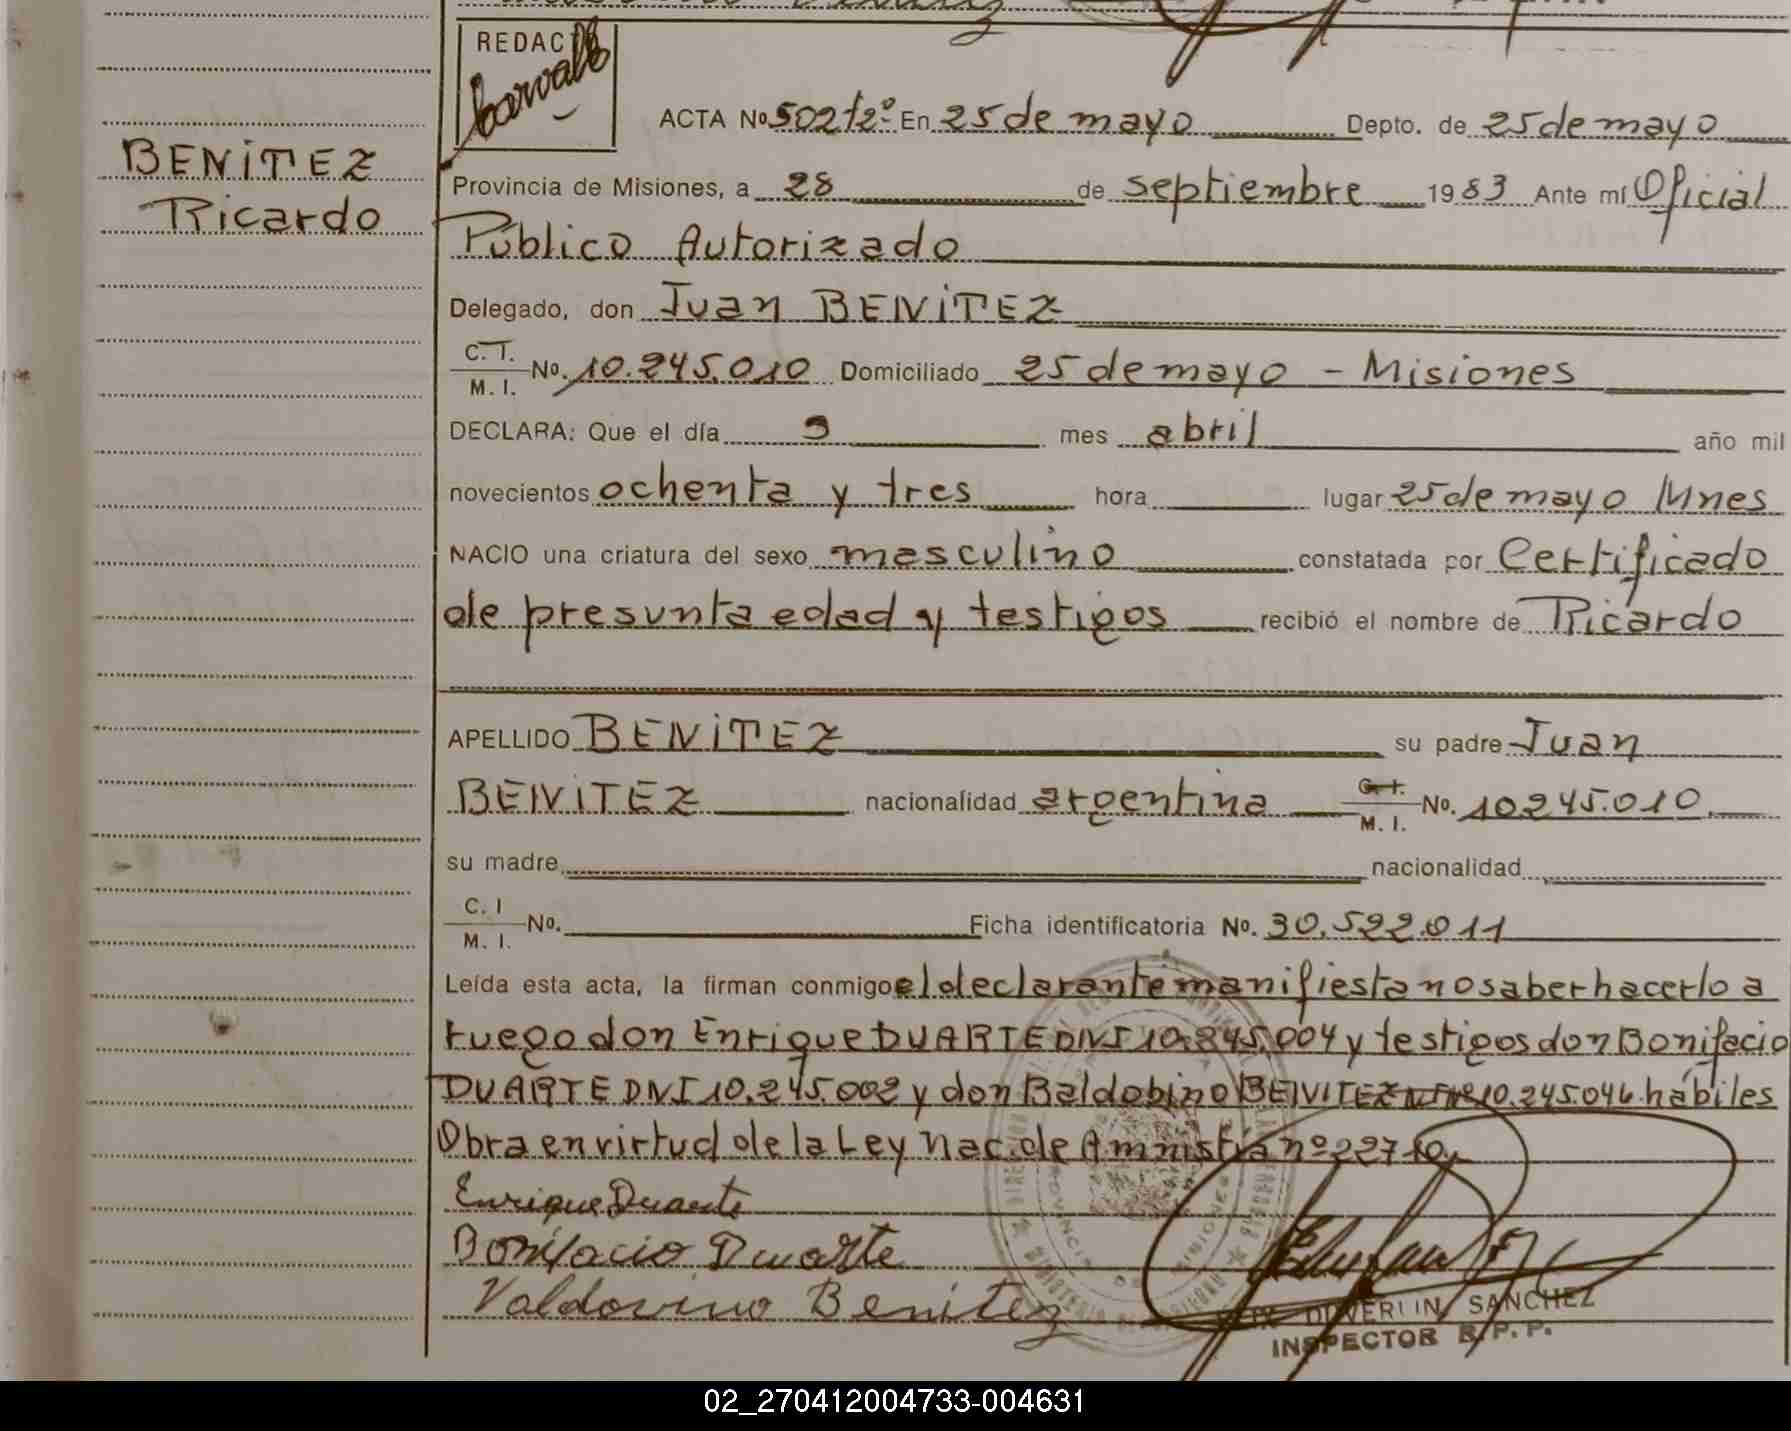 REDAC
BENITEZ
Ricardo
ACTA Nº 502 tº 2º En 25 de mayo Depto. de 25 de mayo
Provincia de Misiones, a 28 de septiembre 1983 Ante mí Oficial
Público Autorizado
Delegado, don Juan BENITEZ
C. T. / M. I. No. 10.245.010 Domiciliado 25 de mayo - Misiones
DECLARA: Que el día 9 mes abril año mil
novecientos ochenta y tres hora lugar 25 de mayo Mnes
NACIO una criatura del sexo masculino constatada por Certificado
de presunta edad y testigos recibió el nombre de Ricardo
APELLIDO BENITEZ su padre Juan
BENITEZ nacionalidad argentina C. I. / M. I. No. 10245.010
su madre nacionalidad
C. I / M. I. No. Ficha identificatoria No. 30.522.011
Leída esta acta, la firman conmigo el declarante manifiesta no saber hacerlo a
ruego don Enrique DUARTE DNI 10.245.004 y testigos don Bonifacio
DUARTE DNI 10.245.002 y don Baldobino BENITEZ 10.245.046 hábiles
Obra en virtud de la Ley Nac. de Amnistia nº 22710
Enrique Duarte
Bonifacio Duarte
Valdovino Benitez
SANCHEZ
INSPECTOR R. P. P.
02_270412004733-004631